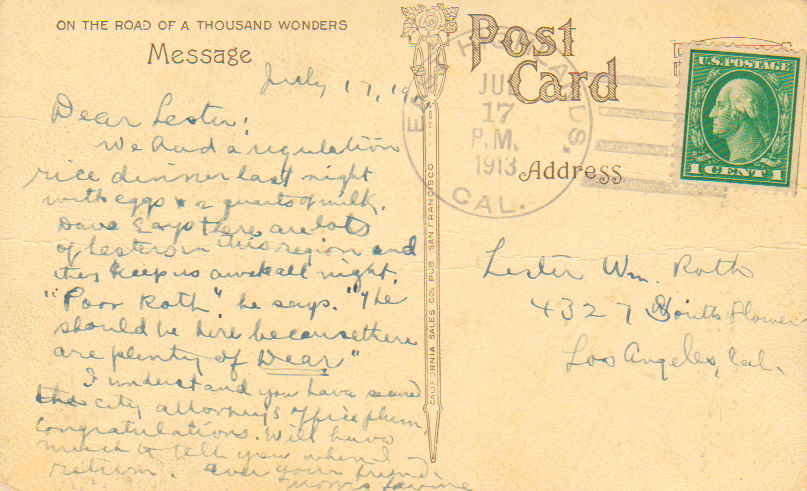 ON THE ROAD OF A THOUSAND WONDERS
Message
July 17, 19
Dear Lester:
We had a regulation
rice dinner last night
with eggs & 2 quarts of milk.
Dave says there are lots
of Lesters in this region and
they keep us awake all night.
"Poor Roth", he says. "He
should be here because there
are plenty of Dear"
I understand you have secured
the city attorney's office plum
Congratulations. Will have
much to tell you when I
return. Ever your friend
Morris Lavine
CALIFORNIA SALES CO. PUB. SAN FRANCISCO
Post
Card
JUL
17
P.M.
1913
CAL.
U.S. POSTAGE
1 CENT 1
Address
Lester Wm. Roth
4327 South Flower
Los Angeles, Cal.